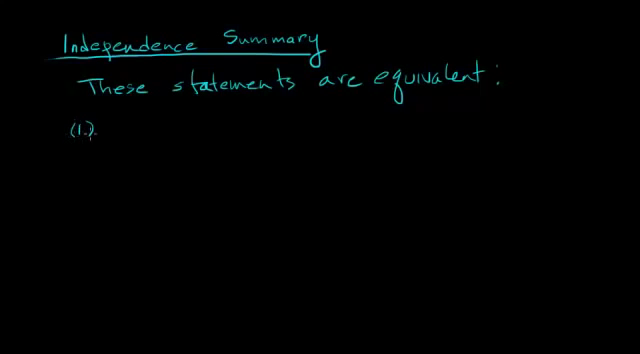 Independence Summary
These statements are equivalent:
(1.)